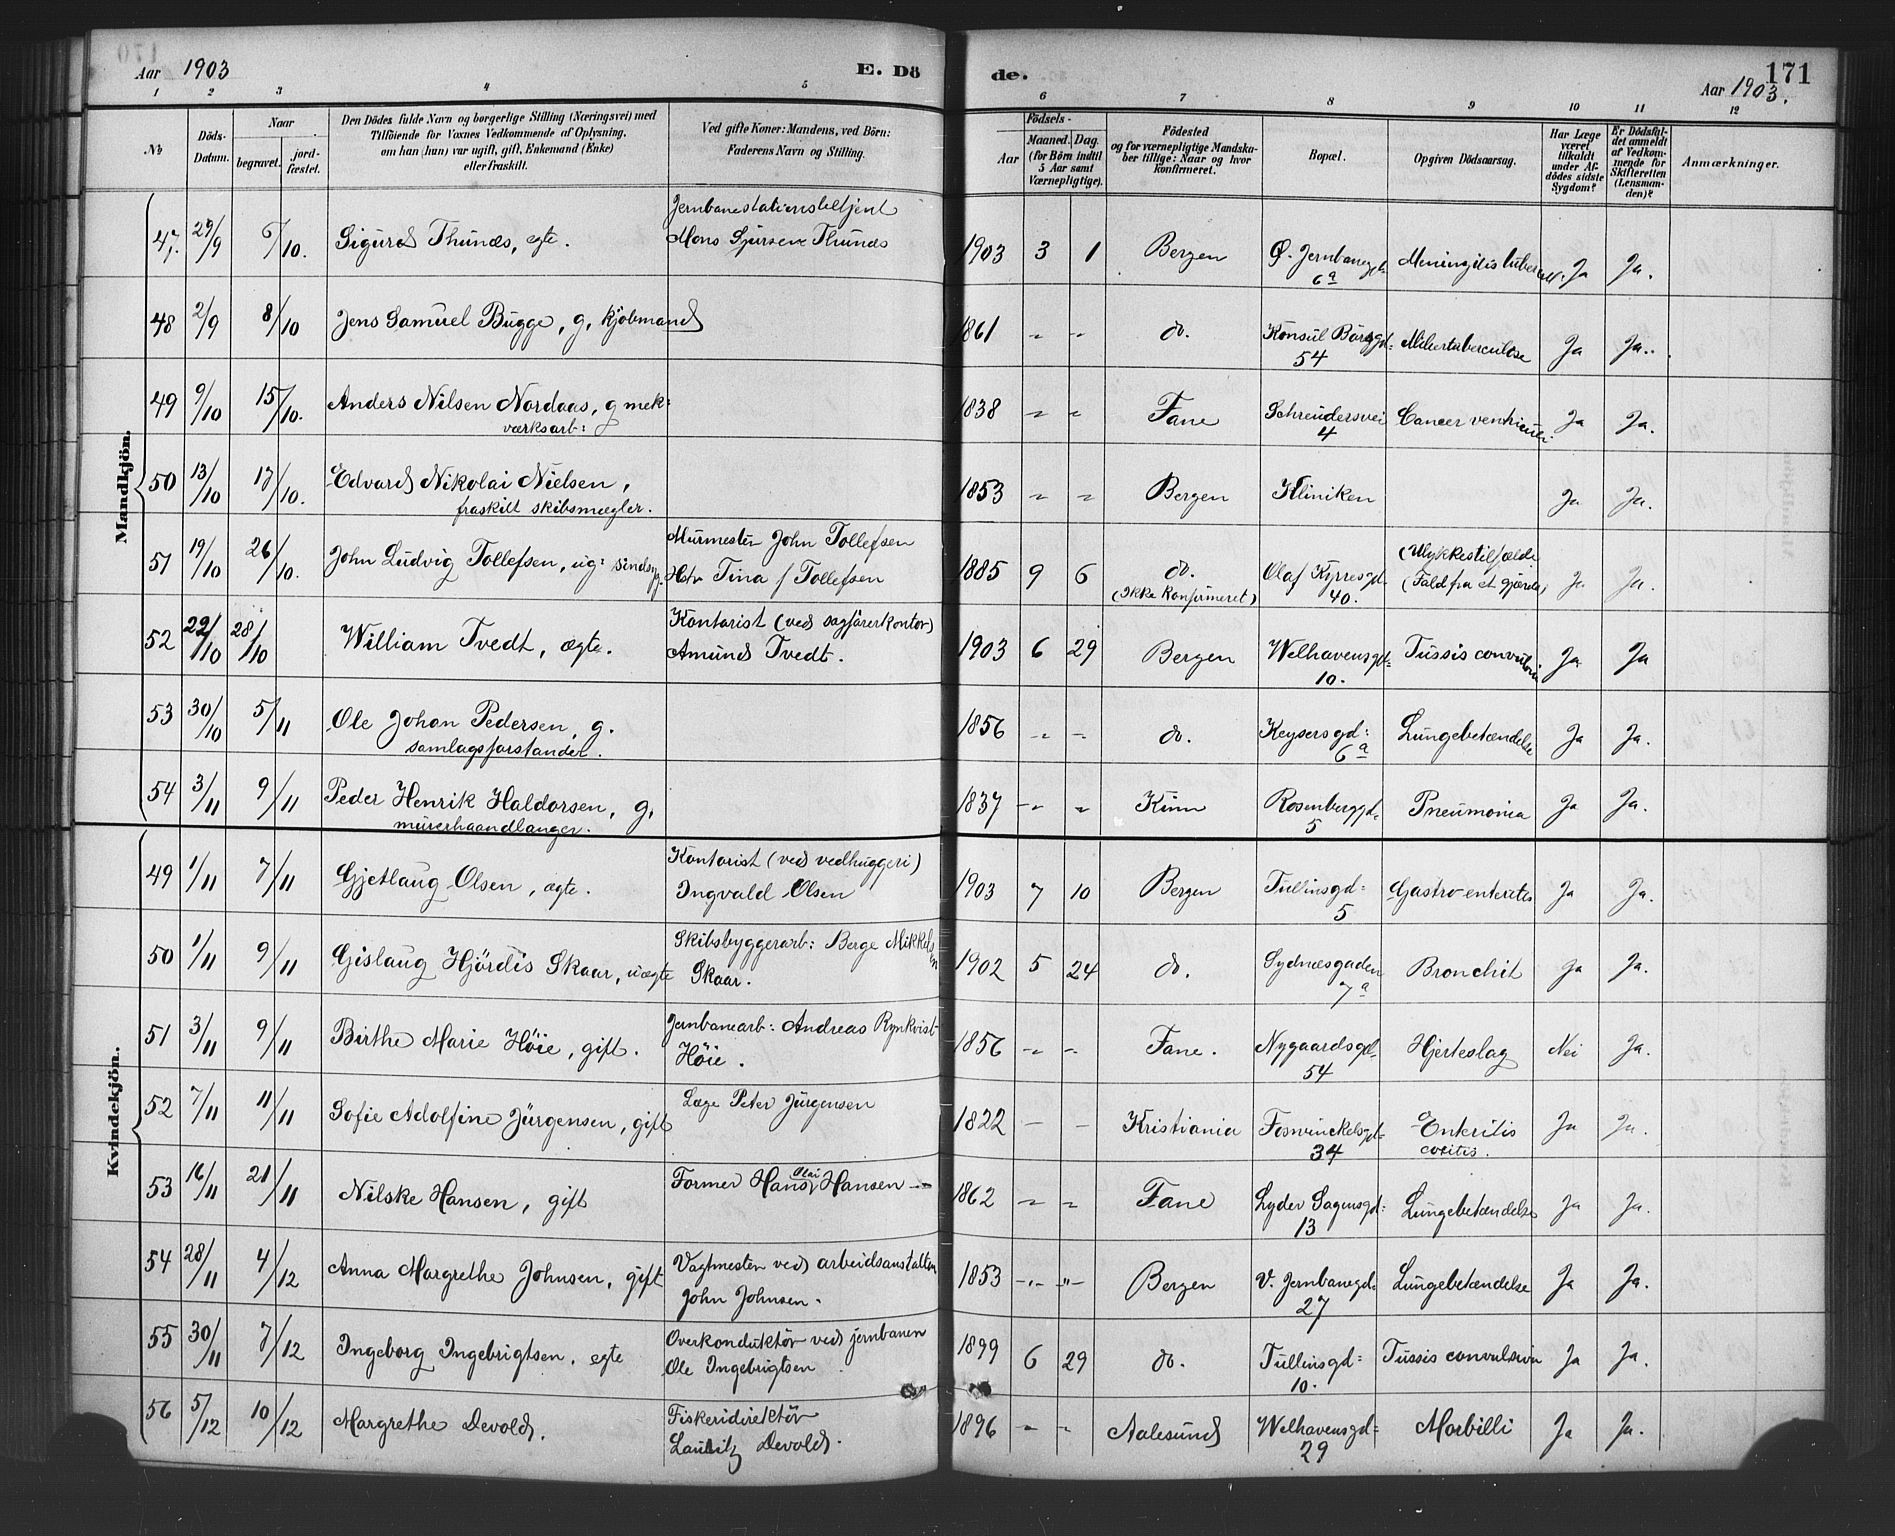 Aar 1903 E. Dö de. 171
Aar 1903.
1 2 3 4 5 6 7 8 9 10 11 12
№ Döds-Datum. Naar begravet. jord-fæstet. Den Dödes fulde Navn og borgerlige Stilling (Næringsvei) med Tilföiende for Voxnes Vedkommende af Oplysning. om han (hun) var ugift, gift, Enkemand (Enke) eller fraskilt. Ved gifte Koner: Mandens, ved Börn: Faderens Navn og Stilling. Födsels- Aar Maaned. Dag. (for Börn indtil 5 Aar samt Værnepligtige). Födested og for værnepligtige Mandskaber tillige: Naar og hvor konfirmeret. Bopæl. Opgiven Dödsaarsag. Har Læge været tilkaldt under Afdödes sidste Sygdom? Er Dödsfaldet anmeldt af Vedkommende for Skifteretten (Lensmanden)? Anmærkninger.
Mandkjön.
47. 29/9 6/10. Sigurd Thunæs, ægte. Jernbanestationsbetjent Mons Sjursen Thunæs 1903 3 1 Bergen Ø. Jernbanegd. 6a Meningitis tubercul. Ja Ja.
48 2/9 8/10 Jens Samuel Bugge, g, kjöbmand 1861 " " do. Konsul Börsgd: 54 Miliertuberculose Ja Ja.
49 9/10 15/10. Anders Nilsen Nordaas, g mek: værksarb: 1838 " " Fane Schreudersvei 4 Cancer ventriculi Ja Ja.
50 13/10 17/10. Edvard Nikolai Nielsen, fraskilt skibsmægler. 1853 " " Bergen Kliniken Ja Ja.
51 19/10 26/10. John Ludvig Tollefsen, ug: sindsyg. Murmester John Tollefsen Hstr Tina f Tollefsen 1885 9 6 do. (Ikke konfirmeret) Olaf Kyrresgd. 40. (Ulykkestilfælde (Fald fra et gjærde) Ja Ja.
52 22/10 28/10 William Tvedt, ægte. Kontorist (ved sagförerkontor) Amund Tvedt. 1903 6 29 Bergen Welhavensgd: 10. Tussis convulsiva Ja Ja
53 30/10 5/11 Ole Johan Pedersen, g. samlagsforstander. 1856 " " do. Keysersgd: 6a Lungebetændelse Ja Ja.
54 3/11 9/11 Peder Henrik Haldorsen, g, murerhaandlanger. 1837 " " Kinn Rosenberggd. 5 Pneumonia Ja Ja.
Kvindekjön.
49 1/11 7/11 Gjetlaug Olsen, ægte. Kontorist (ved vedhuggeri) Ingvald Olsen 1903 7 10 Bergen Tullinsgd: 5 Gastro-enterites Ja Ja.
50 1/11 9/11 Gislaug Hjördis Skaar, uægte Skibsbyggerarb: Berge Mikkelsen Skaar. 1902 5 24 do. Sydnæsgaden 7a Bronchit Ja Ja.
51 3/11 9/11 Birthe Marie Höie, gift. Jernbanearb: Andreas Rynkvist Höie. 1856 " " Fane. Nygaardsgd. 54 Hjerteslag Nei Ja.
52 7/11 11/11 Sofie Adolfine Jürgensen, gift Læge Peter Jürgensen 1822 - - Kristiania Fosswinckelsgd. 34 Enteritis Ja Ja.
53 16/11 21/11 Nilske Hansen, gift Former Hans Olai Hansen 1862 " " Fane Lyder Sagensgd: 13 Lungebetændelse Ja Ja.
54 28/11 4/12 Anna Margrethe Johnsen, gift Vagtmester ved arbeidsanstalten John Johnsen. 1853 " " Bergen V. Jernbanegd. 27 Lungebetændelse Ja Ja.
55 30/11 7/12 Ingeborg Ingebrigtsen, egte Overkonduktör ved jernbanen Ole Ingebrigtsen 1899 6 29 do. Tullinsgd: 10. Tussis convulsiva Ja Ja.
56 5/12 10/12 Margrethe Devold. Fiskeridirektör Lauritz Devold. 1896 " " Aalesund Welhavensgd: 29 Morbilli Ja Ja.